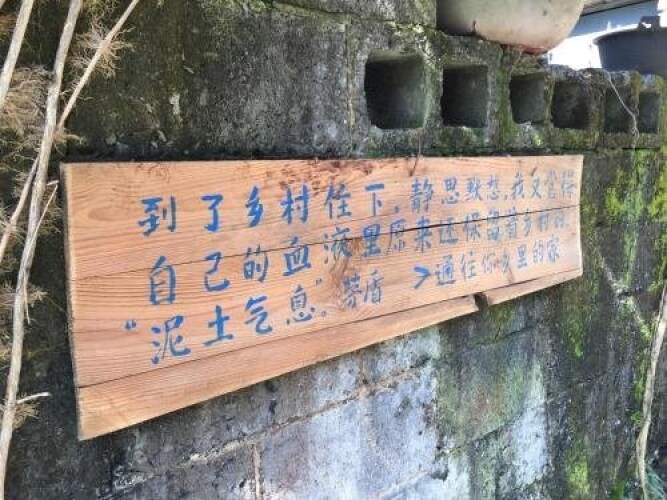 到了乡村住下，静思默想，我又觉得
自己的血液里原来还保留着乡村的
“泥土气息”。茅盾 >通往你乡里的家